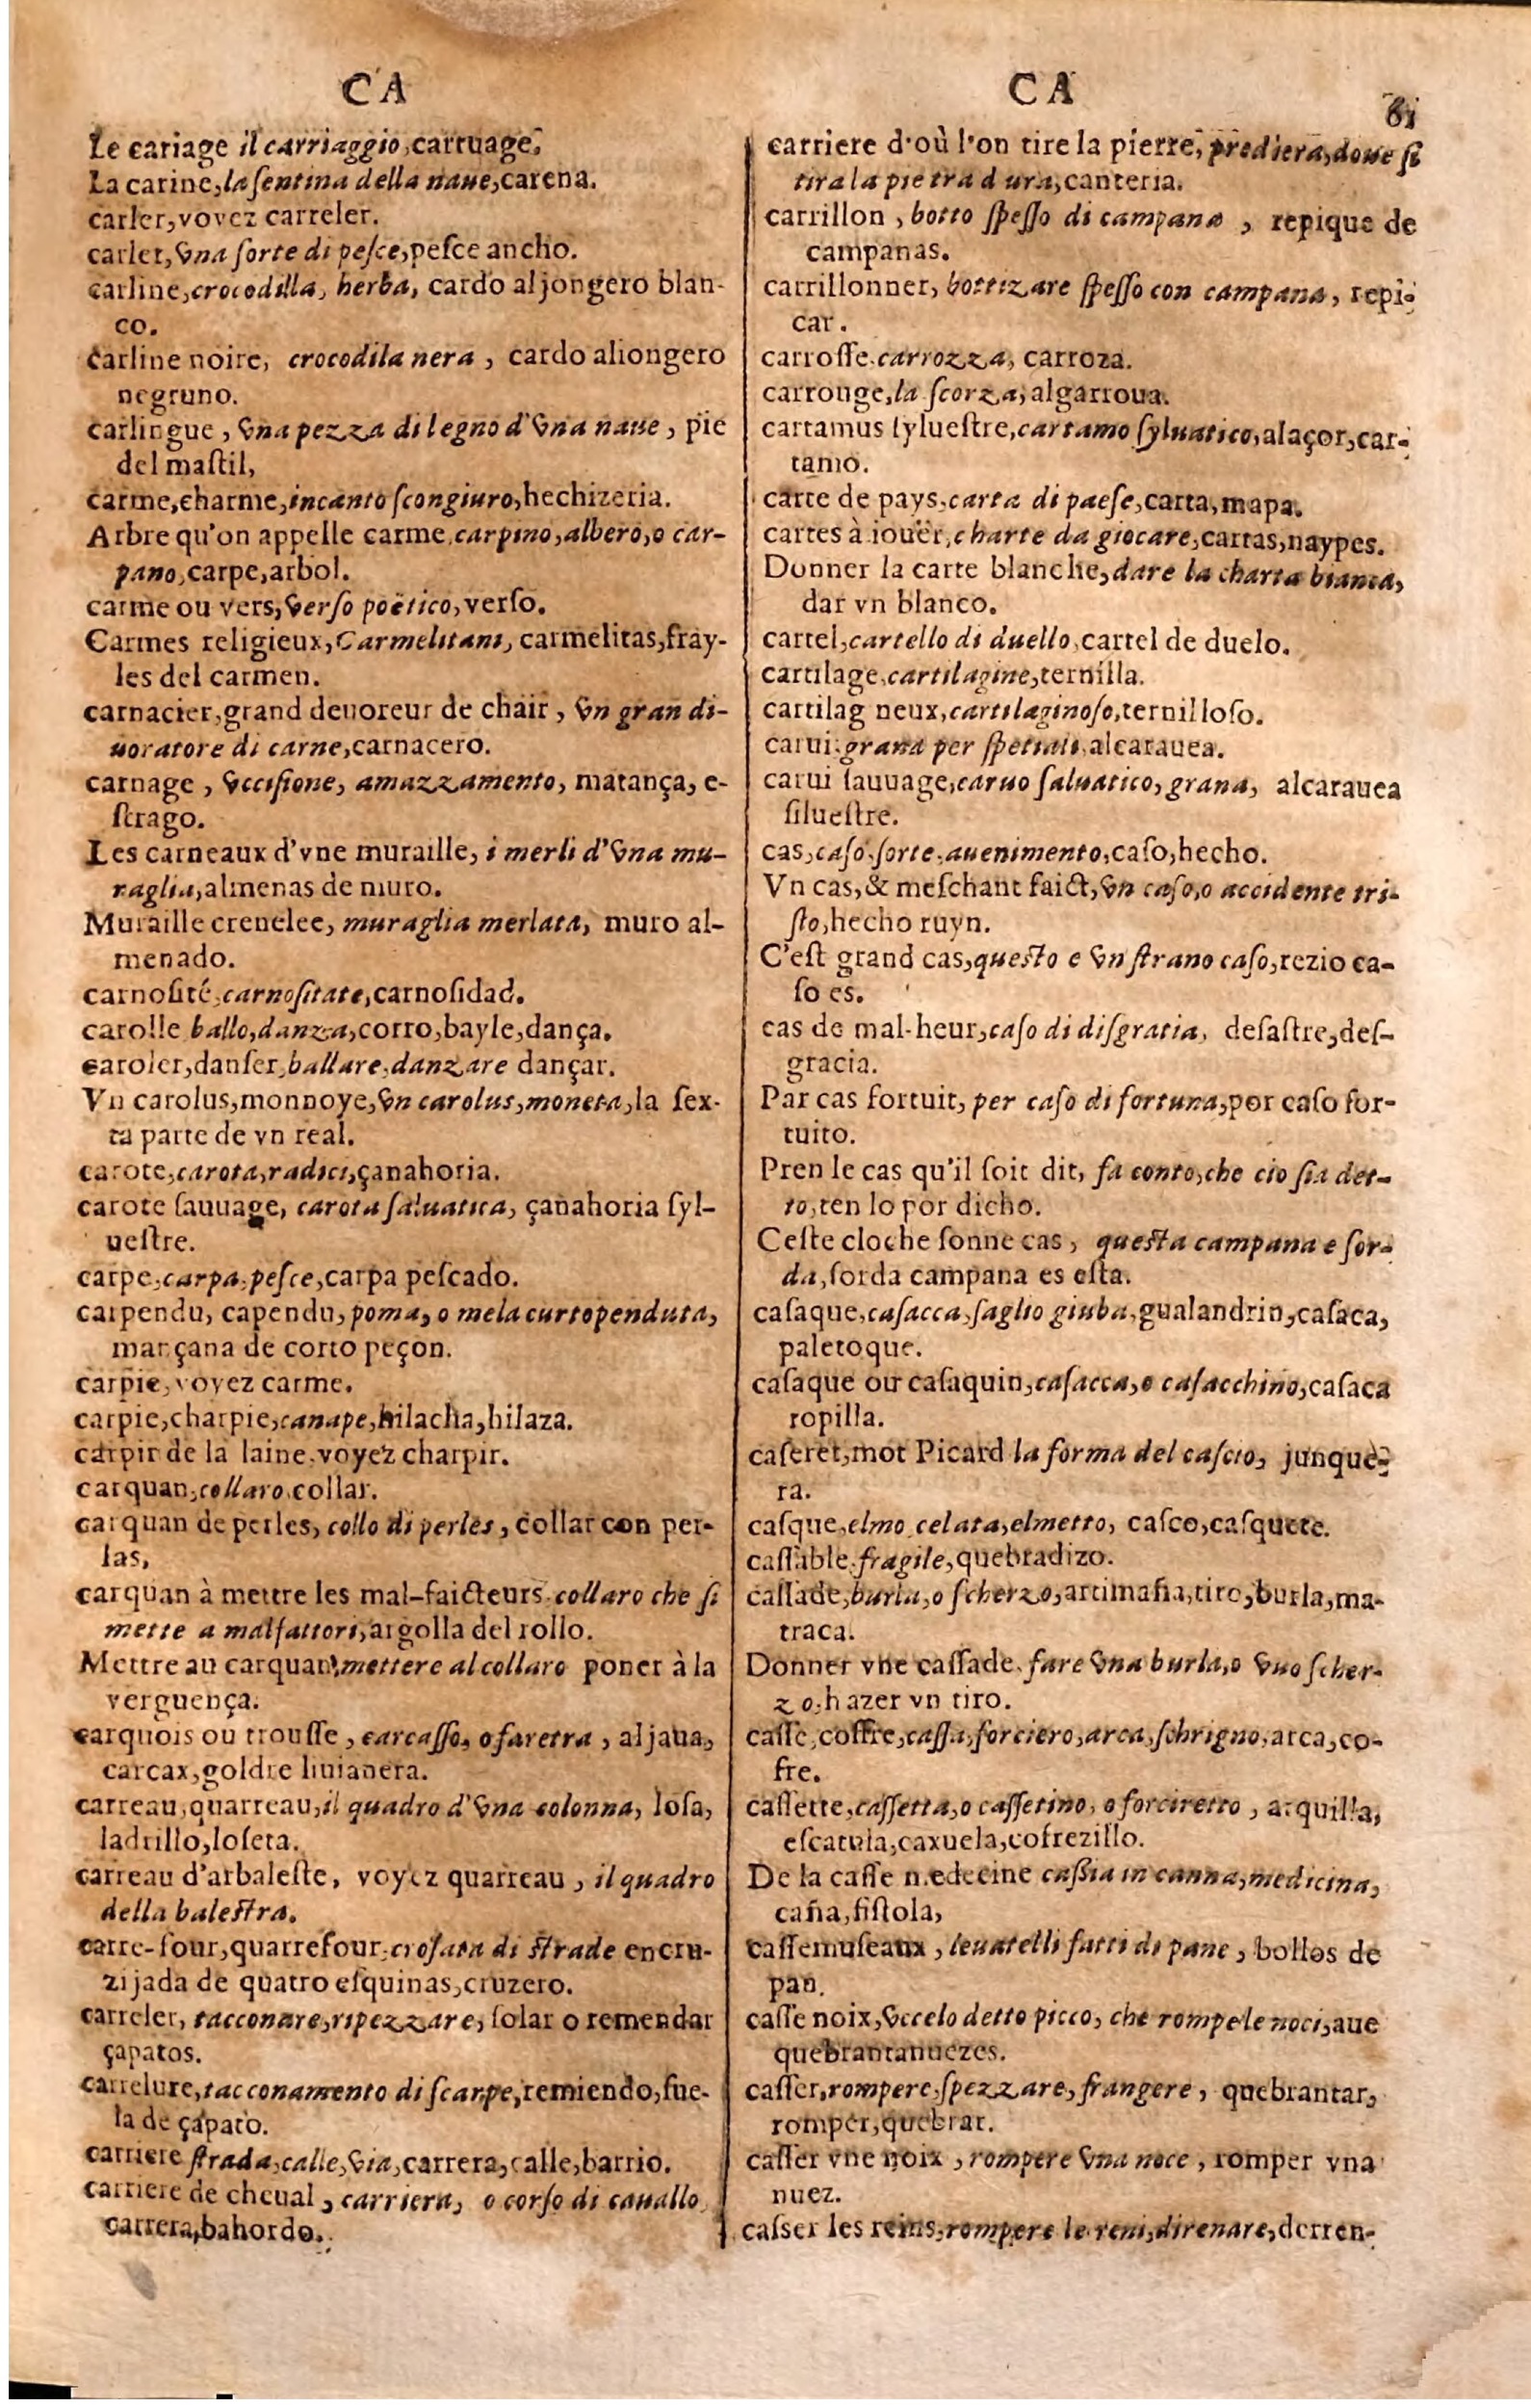 CA
Le cariage il carriaggio, carruage.
La carine, la ſentina della naue, carena.
carler, voyez carreler.
carlet, vna ſorte di peſce, peſce ancho.
carline, crocodilla, herba, cardo aljongero blan-
co.
carline noire, crocodila nera, cardo aliongero
negruno.
carlingue, vna pezza di legno d'vna naue, pie
del maſtil,
carme, charme, incanto ſcongiuro, hechizeria.
Arbre qu'on appelle carme, carpino, albero, o car-
pano, carpe, arbol.
carme ou vers, verſo poëtico, verſo.
Carmes religieux, Carmelitani, carmelitas, fray-
les del carmen.
carnacier, grand deuoreur de chair, vn gran di-
uoratore di carne, carnacero.
carnage, vcciſione, amazzamento, matança, e-
ſtrago.
Les carneaux d'vne muraille, i merli d'vna mu-
raglia, almenas de muro.
Muraille crenelee, muraglia merlata, muro al-
menado.
carnoſité, carnoſitate, carnoſidad.
carolle ballo, danza, corro, bayle, dança.
caroler, danſer, ballare, danzare dançar.
Vn carolus, monnoye, vn carolus, moneta, la ſex-
ta parte de vn real.
carote, carota, radici, çanahoria.
carote ſauuage, carota ſaluatica, çanahoria ſyl-
ueſtre.
carpe, carpa, peſce, carpa peſcado.
carpendu, capendu, poma, o mela curtopenduta,
marçana de corto peçon.
carpie, voyez carme.
carpie, charpie, canape, hilacha, hilaza.
carpir de la laine, voyez charpir.
carquan, collaro collar.
carquan de perles, collo di perles, collar con per-
las,
carquan à mettre les mal-faicteurs, collaro che ſi
mette a malfattori, argolla del rollo.
Mettre au carquan, mettere al collaro poner à la
verguença.
carquois ou trouſſe, carcaſſo, o faretra, aljaua,
carcax, goldre liuianera.
carreau, quarreau, il quadro d'vna colonna, loſa,
ladrillo, loſeta.
carreau d'arbaleſte, voyez quarreau, il quadro
della baleſtra.
carre-four, quarrefour, croſata di ſtrade encru-
zijada de quatro eſquinas, cruzero.
carreler, tacconare, ripezzare, ſolar o remendar
çapatos.
carrelure, tacconamento di ſcarpe, remiendo, ſue-
la de çapato.
carriere ſtrada, calle, via, carrera, calle, barrio.
carriere de cheual, carriera, o corſo di cauallo,
carrera, bahordo.
CA
81
carriere d'où l'on tire la pierre, prediera, doue ſi
tira la pietra dura, canteria.
carrillon, botto ſpeſſo di campana, repique de
campanas.
carrillonner, bottizare ſpeſſo con campana, repi-
car.
carroſſe, carrozza, carroza.
carrouge, la ſcorza, algarroua.
cartamus ſylueſtre, cartamo ſyluatico, alaçor, car-
tamo.
carte de pays, carta di paeſe, carta, mapa.
cartes à iouër, charte da giocare, cartas, naypes.
Donner la carte blanche, dare la charta bianca,
dar vn blanco.
cartel, cartello di duello, cartel de duelo.
cartilage, cartilagine, ternilla.
cartilag neux, cartilaginoſo, ternilloſo.
carui: grana per ſpetiali, alcarauea.
carui ſauuage, caruo ſaluatico, grana, alcarauea
ſilueſtre.
cas, caſo, ſorte, auenimento, caſo, hecho.
Vn cas, & meſchant faict, vn caſo, o accidente tri-
ſto, hecho ruyn.
C'eſt grand cas, queſto e vn ſtrano caſo, rezio ca-
ſo es.
cas de mal-heur, caſo di diſgratia, deſaſtre, deſ-
gracia.
Par cas fortuit, per caſo di fortuna, por caſo for-
tuito.
Pren le cas qu'il ſoit dit, fa conto, che cio ſia det-
to, ten lo por dicho.
Ceſte cloche ſonne cas, queſta campana e ſor-
da, ſorda campana es eſta.
caſaque, caſacca, ſaglio giuba, gualandrin, caſaca,
paletoque.
caſaque ou caſaquin, caſacca, o caſacchino, caſaca
ropilla.
caſeret, mot Picard la forma del caſcio, junque-
ra.
caſque, elmo, celata, elmetto, caſco, caſquete.
caſſable, fragile, quebradizo.
caſſade, burla, o ſcherzo, artimaña, tiro, burla, ma-
traca.
Donner vne caſſade, fare vna burla, o vno ſcher-
zo, hazer vn tiro.
caſſe, coffre, caſſa, forciero, arca, ſchrigno, arca, co-
fre.
caſſette, caſſetta, o caſſetino, o forciretto, arquilla,
eſcatula, caxuela, cofrezillo.
De la caſſe medecine caßia in canna, medicina,
caña, fiſtola,
caſſemuſeaux, leuatelli fatti di pane, bollos de
pan.
caſſe noix, vccelo detto picco, che rompe le noci, aue
quebrantanuezes.
caſſer, rompere, ſpezzare, frangere, quebrantar,
romper, quebrar.
caſſer vne noix, rompere vna noce, romper vna
nuez.
caſſer les reins, rompere le reni, direnare, derren-